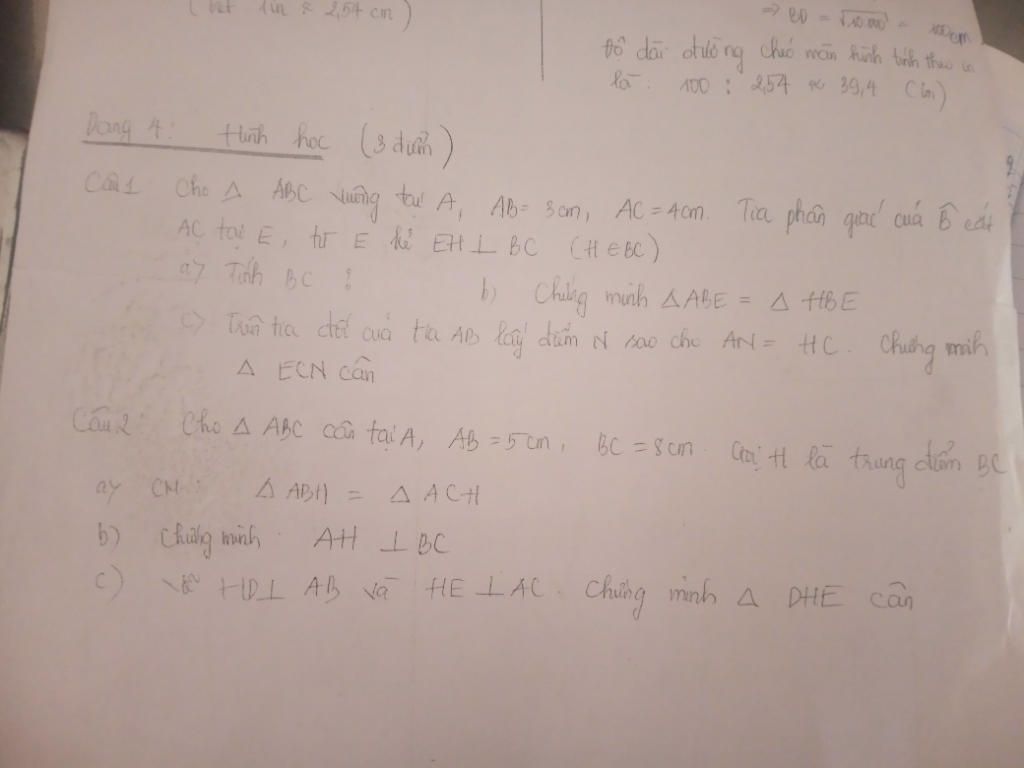 (biết 1in ≈ 2,54 cm)
=> BD = √10 000 = 100cm
Độ dài đường chéo màn hình tính theo in
là: 100 : 2,54 ≈ 39,4 (in)
Dạng 4: Hình học (3 điểm)
Câu 1 Cho △ ABC vuông tại A, AB = 3cm, AC = 4cm. Tia phân giác của B̂ cắt
AC tại E, từ E kẻ EH ⊥ BC (H ∈ BC)
a) Tính BC ?
b) Chứng minh △ABE = △ HBE
c) Trên tia đối của tia AB lấy điểm N sao cho AN = HC. Chứng minh
△ ECN cân
Câu 2: Cho △ ABC cân tại A, AB = 5cm, BC = 8cm. Gọi H là trung điểm BC
a) CM: △ ABH = △ ACH
b) Chứng minh AH ⊥ BC
c) Vẽ HD ⊥ AB và HE ⊥ AC. Chứng minh △ DHE cân